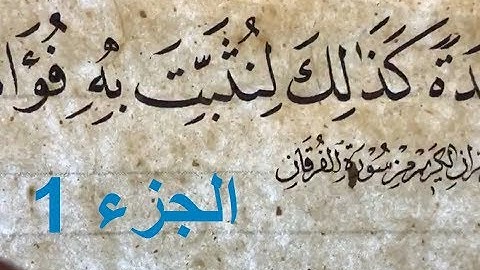 دَةً كَذَٰلِكَ لِنُثَبِّتَ بِهِ فُؤَا
رآن الكريم من سورة الفرقان
الجزء 1